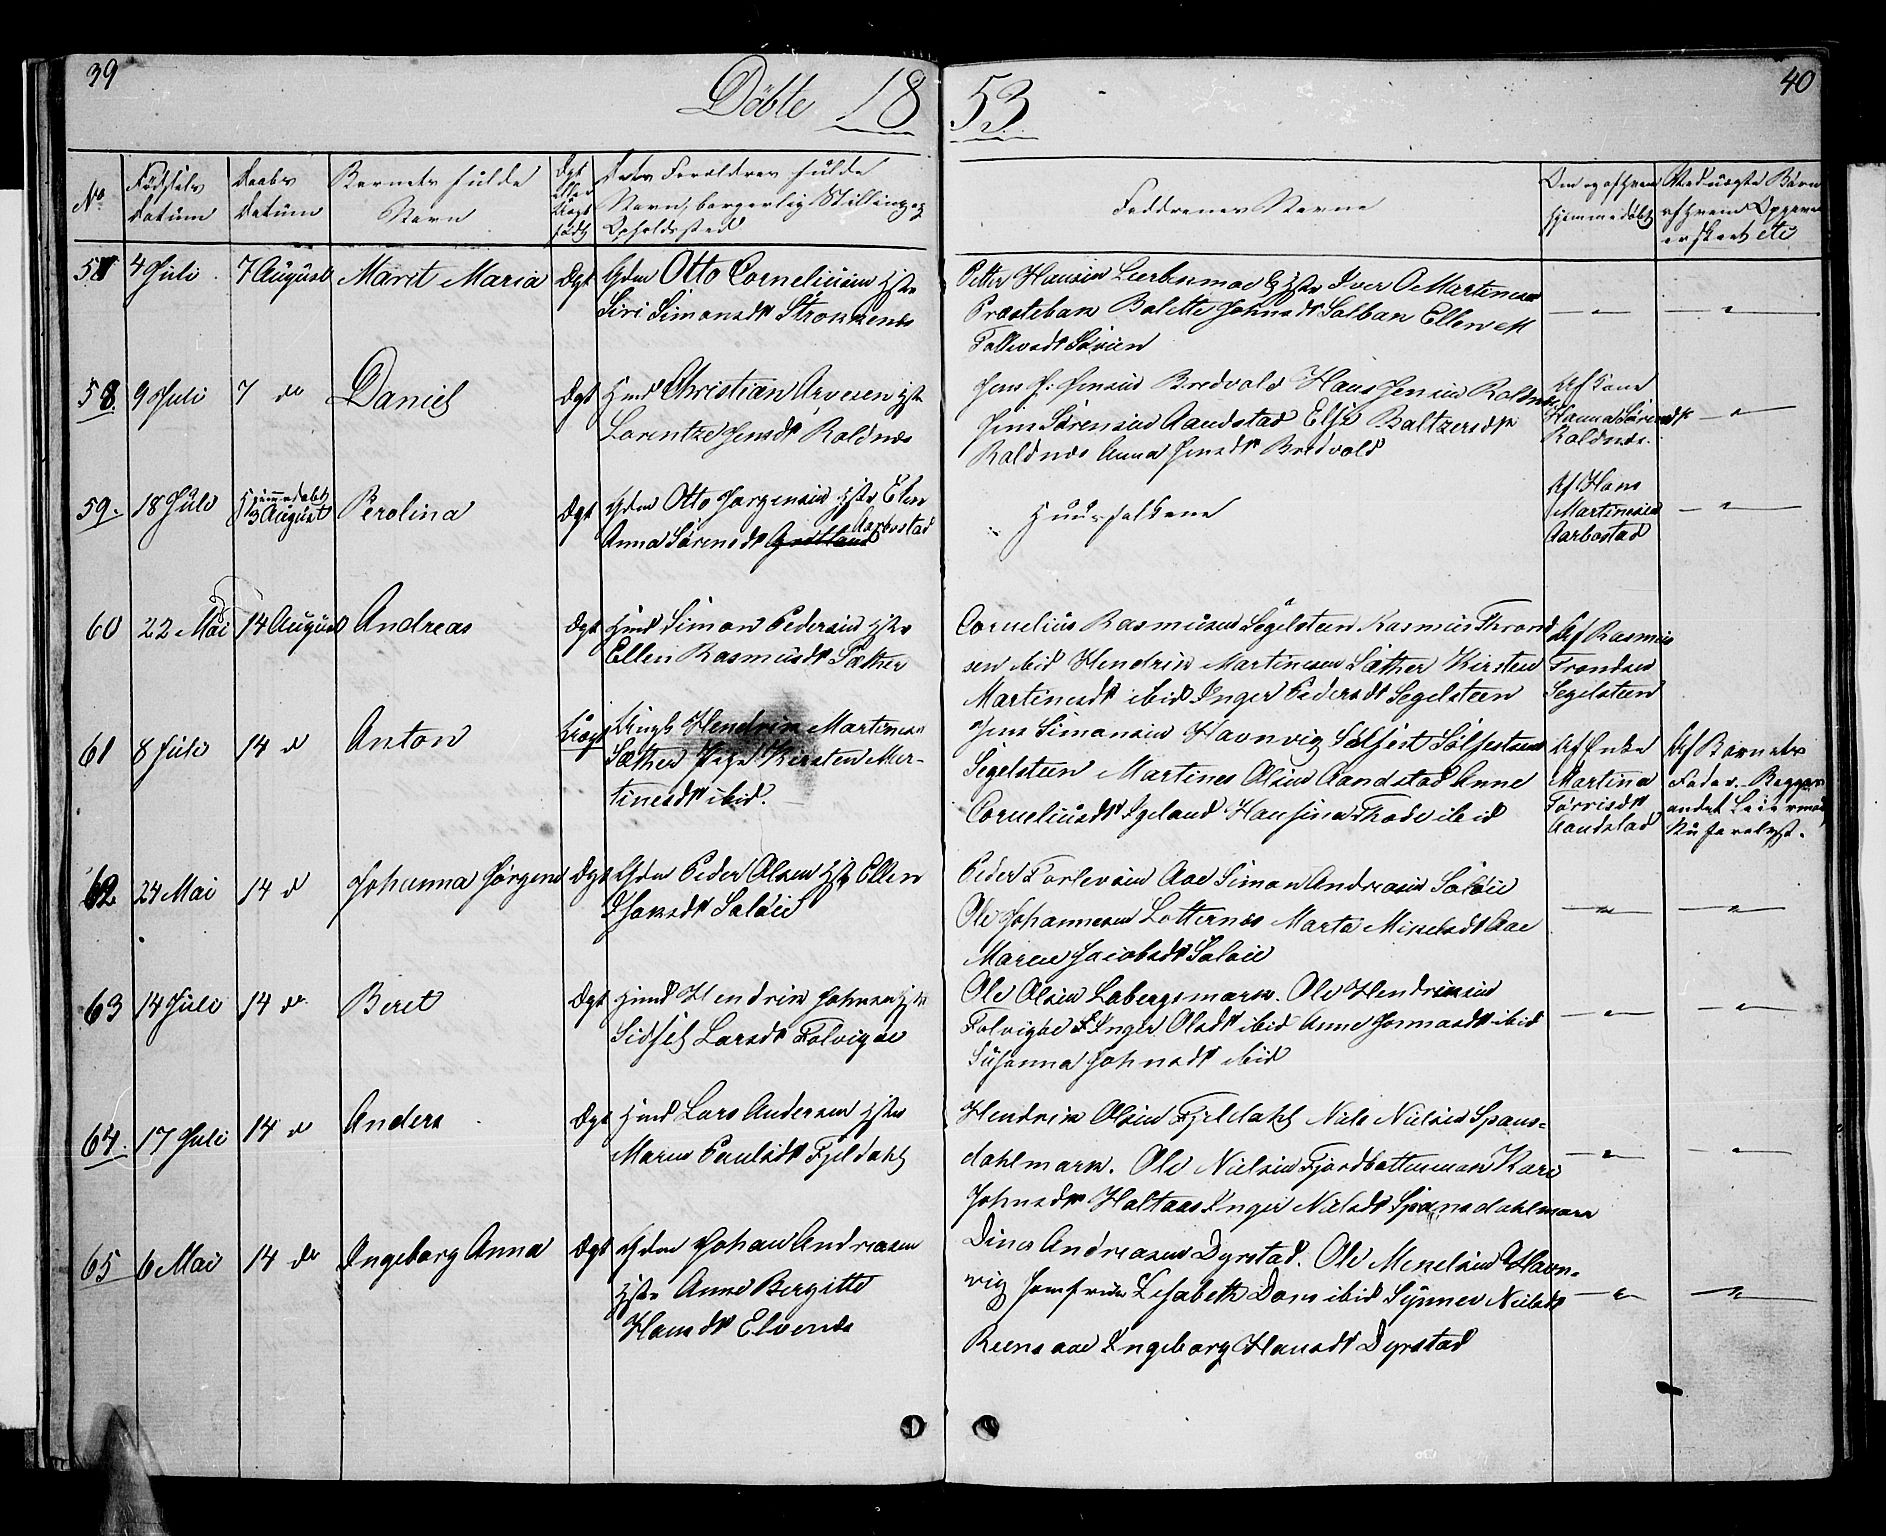 39
40
Döbte 18 53
No
Fødsels datum
Daabs datum
Barnets fulde Navn
Dets Foreldres fulde Navn, borgerlig Stilling og Opholdssted
Faddrenes Navne
Om og af hvem hjemmedøbt
4 Juli 7 August Marit Maria Ægt Gdm Otto Corneliusen Hstr
Siri Simonsdt Strokkenæs
Petter Hansen Iver Martinesen
Balette Johnsdt Salban Ellen M
58. 9 Juli 7 do Daniel Ægt Hmd Christian Arvesen Hstr
Lorentze Jensdt Roldnæs
Jens P. Jensen Bredvold Hans Jensen Roldnæs
Jens Sørensen Aandstad Else Baltzersdt
Roldnæs Anna Jensdt Bredvold
Af Kone
Hanna Sørensdt
Roldnæs.
59. 18 Juli Hjemmedøbt
13 August Perolina Ægt Gdm Otto Jørgensen Hstr Elen
Anna Sørensdt Aarbostad
Huusfolkene
Af Hans
Martinesen
Aarbostad
60 22 Mai 14 August Andreas Ægt Hmd Simon Pedersen Hstr
Ellen Rasmusdt Sæther
Cornelius Rasmusen Segelsteen Rasmus Trond
sen ibid Hendrik Martinesen Sæther Kirsten
Martinesdt ibid Inger Pedersdt Segelsteen
Af Rasmus
Trondsen
Segelsteen
61 8 Juli 14 d Anton Uægt Ungk Hendrik Martinesen
Sæther Pige Kirsten Mar-
tinesdt ibid.
Jens Simonsen Havnvig Sølfest Sølfestsen
Segelsteen Martines Olsen Aandstad Anne
Corneliusdt Igeland Hansina Thode ibid
Af Enke
Martina
Tørrisdt
Aandstad
Af Barnets
Fader. Begges
andet Leiermaal
62 24 Mai 14 d Johanna Jørgine Ægt Gdm Peder Olsen Hstr Ellen
Isaksdt Saløie
Peder Torlevsen Aae Simon Andreasen Saløie
Ole Johannesen Lotternæs Marta Mikelsdt Aae
Maren Jacobsdt Saløie
63 14 Juli 14 do Beret Ægt Hmd Hendrik Johnsen Hstr
Sidsel Larsdt Folvigøe
Ole Olsen Labergsmark. Ole Hendriksen
Folvigøe Inger Olsdt ibid Anne Jonnasdt ibid
Susanna Johnsdt ibid
64. 17 Juli 14 d Anders Ægt Hmd Lars Andersen Hstr
Maren Paulsdt Fjeldahl
Hendrik Olsen Fjeldahl Nils Nielsen Spans-
dahlmark. Ole Nielsen Fjordbottenmark Kari
Johnsdt Haltaas Inger Nielsdt Spansdahlmark
65 6 Mai 14 do Ingeborg Anna Ægt Gdm Johan Andreasen
Hstr Anne Bergitte
Hansdt Elvenæs
Dines Andreasen Dyrstad. Ole Mikelsen Havn-
vig Jomfrue Lisabeth Dons ibid Synnev Nielsdt
Reensaae Ingeborg Hansdt Dyrstad